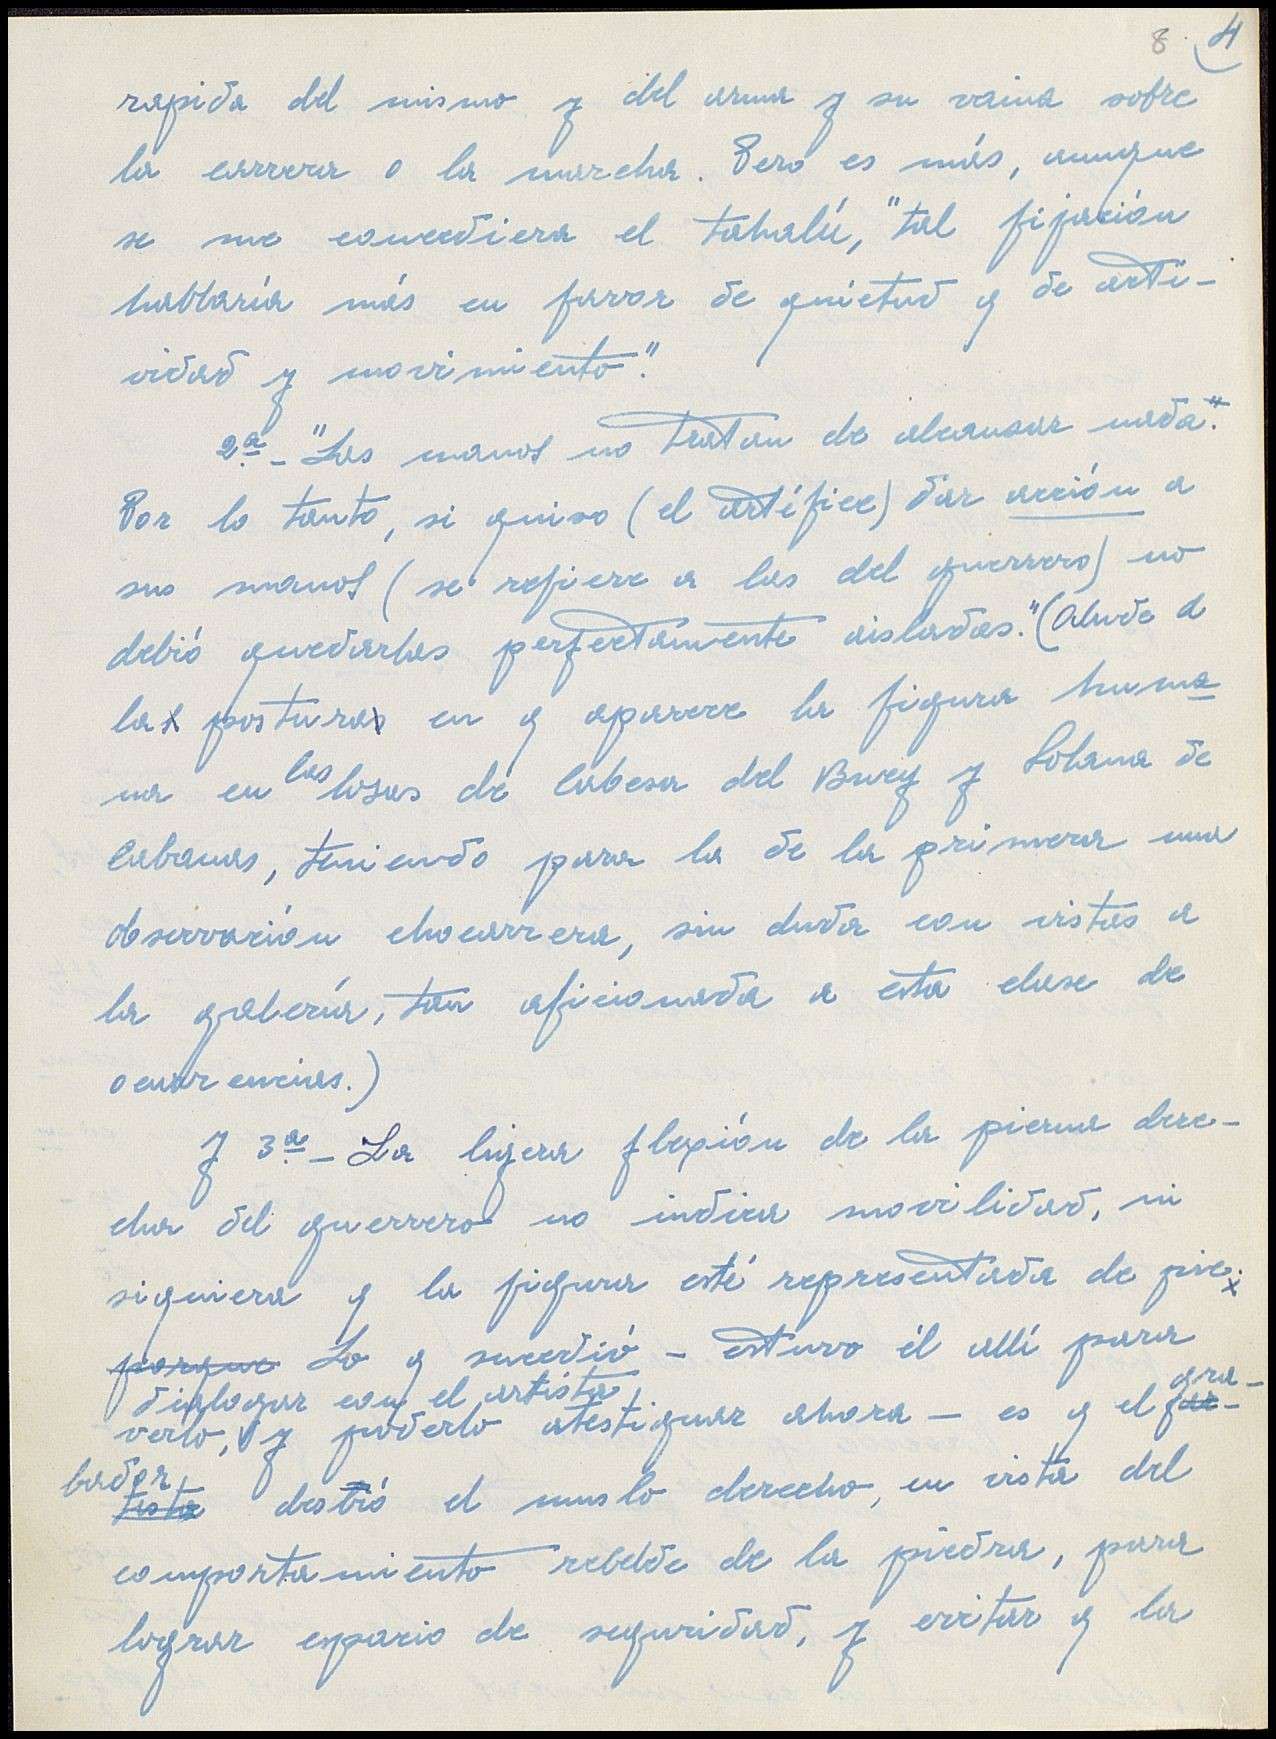 8 4
rapida del mismo y del arma y su vaina sobre
la carrera o la marcha. Pero es más, aunque
se me concediera el tahalí, "tal fijación
hablaría más en favor de quietud q de acti-
vidad y movimiento".
2ª - "Las manos no tratan de alcanzar nada".
Por lo tanto, si quiso (el artífice) dar acción a
sus manos (se refiere a las del guerrero) no
debió quedarlas perfectamente aisladas." (Alude a
la postura en q aparece la figura huma
na en las losas de Cabeza del Buey y Solana de
Cabanas, teniendo para la de la primera una
observación chocarrera, sin duda con vistas a
la galería, tan aficionada a esta clase de
ocurrencias.)
Y 3ª - La ligera flexión de la pierna dere-
cha del guerrero no indica movilidad, ni
siquiera q la figura esté representada de pie.
porque Lo q sucedió - estuvo él allí para
dialogar con el artista, gra-
verlo, y poderlo atestiguar ahora - es q el
bador,
tista desvió el muslo derecho, en vista del
comportamiento rebelde de la piedra, para
lograr espacio de seguridad, y evitar q la